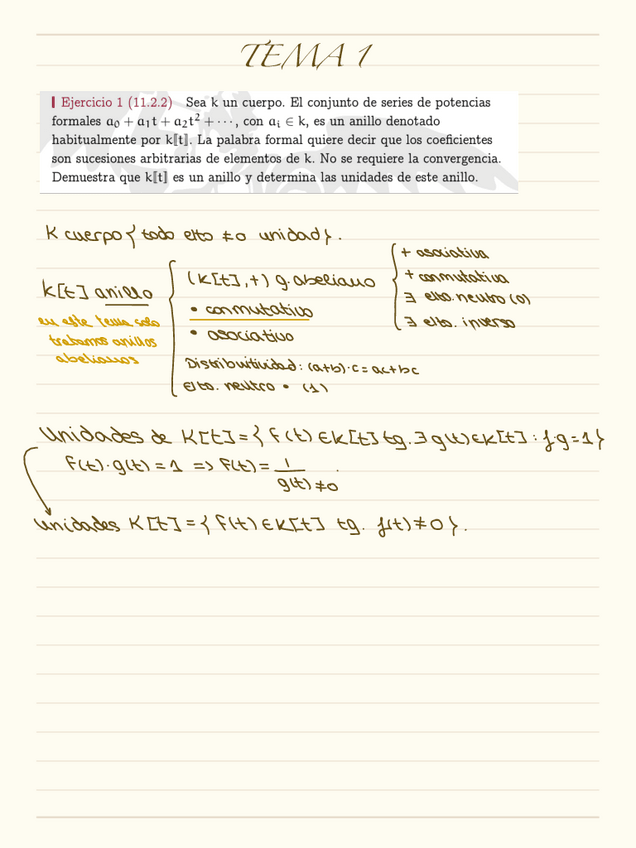 TEMA 1
Ejercicio 1 (11.2.2) Sea k un cuerpo. El conjunto de series de potencias
formales a₀ + a₁t + a₂t² + ⋯, con aᵢ ∈ k, es un anillo denotado
habitualmente por k⟦t⟧. La palabra formal quiere decir que los coeficientes
son sucesiones arbitrarias de elementos de k. No se requiere la convergencia.
Demuestra que k⟦t⟧ es un anillo y determina las unidades de este anillo.
K cuerpo { todo elto ≠0 unidad }.
K[t] anillo
en este tema solo
tratamos anillos
abelianos
(K[t],+) g. abeliano
• conmutativo
• asociativo
Distributividad: (a+b)·c = ac+bc
elto. neutro • (1)
+ asociativa
+ conmutativa
∃ elto. neutro (0)
∃ elto. inverso
Unidades de K[t] = { f(t) ∈ K[t] tq. ∃ g(t) ∈ K[t] : f·g = 1 }
f(t)·g(t) = 1 => f(t) = 1/g(t) ≠0
unidades K[t] = { f(t) ∈ K[t] tq. f(t) ≠ 0 }.